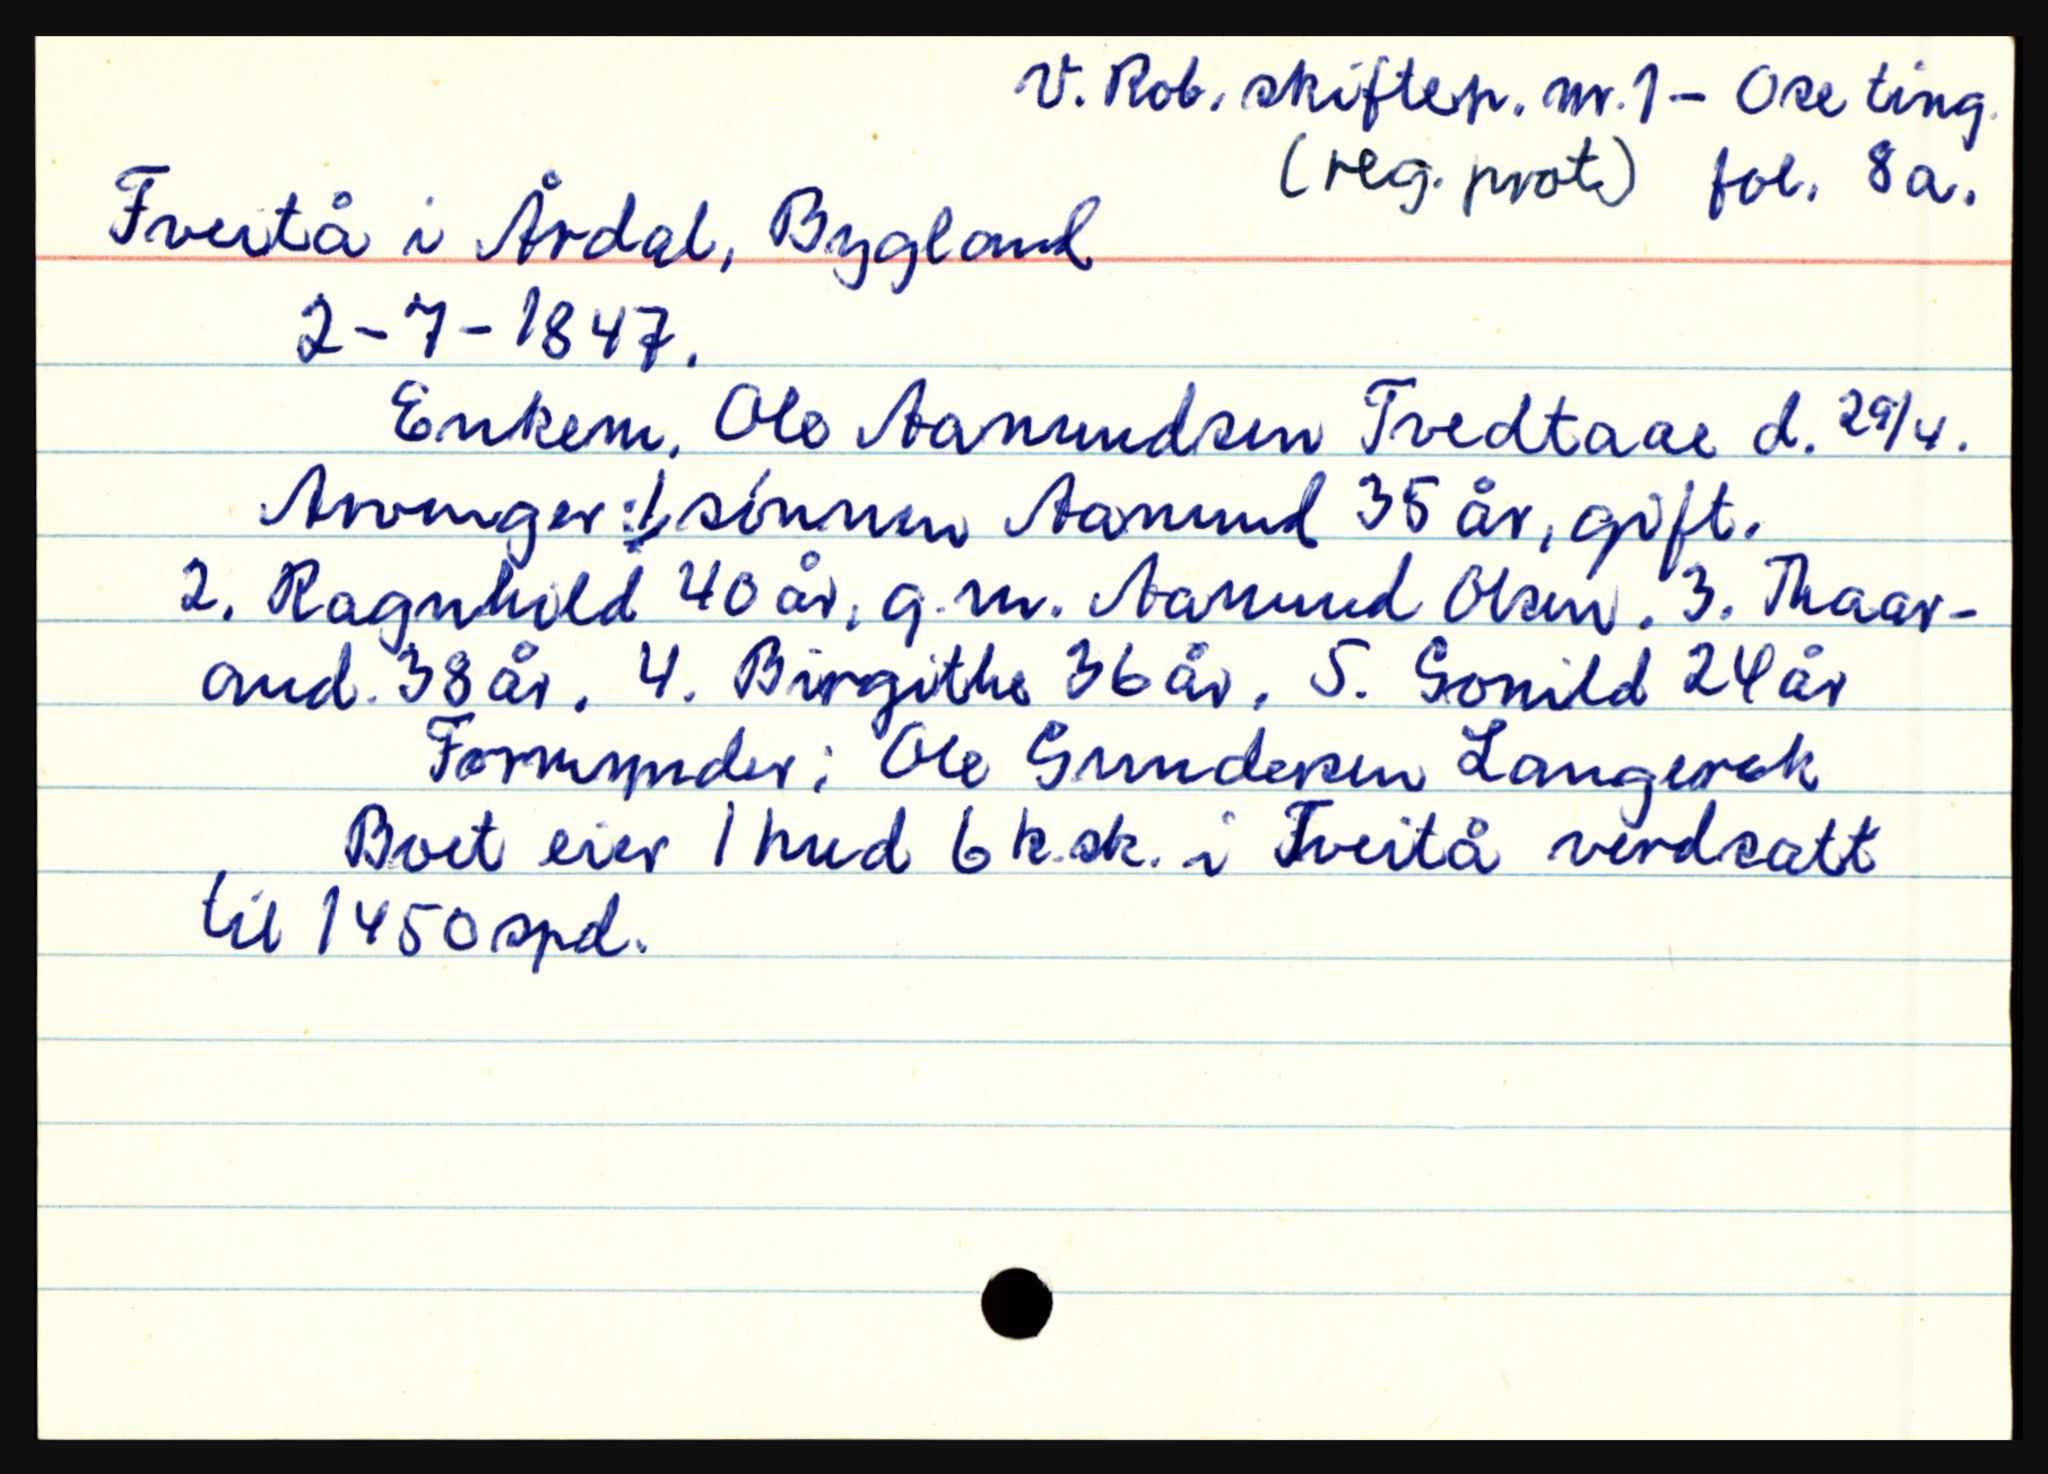 V. Rob. skiftep. nr. 1 - Ose ting.
(reg. prot.) fol. 8a.
Tveitå i Årdal, Bygland
2-7-1847.
Enkem. Ole Aanundsen Tvedtaae d. 29/4.
Arvinger: 1. sønnen Aanund 35 år, gift.
2. Ragnhild 40 år, g.m. Aanund Olsen. 3. Thaar-
and 38 år. 4. Birgithe 36 år. 5. Gonild 24 år
Formynder: Ole Gundersen Langerak
Boet eier 1 hud 6 k.sk. i Tveitå verdsatt
til 1450 spd.